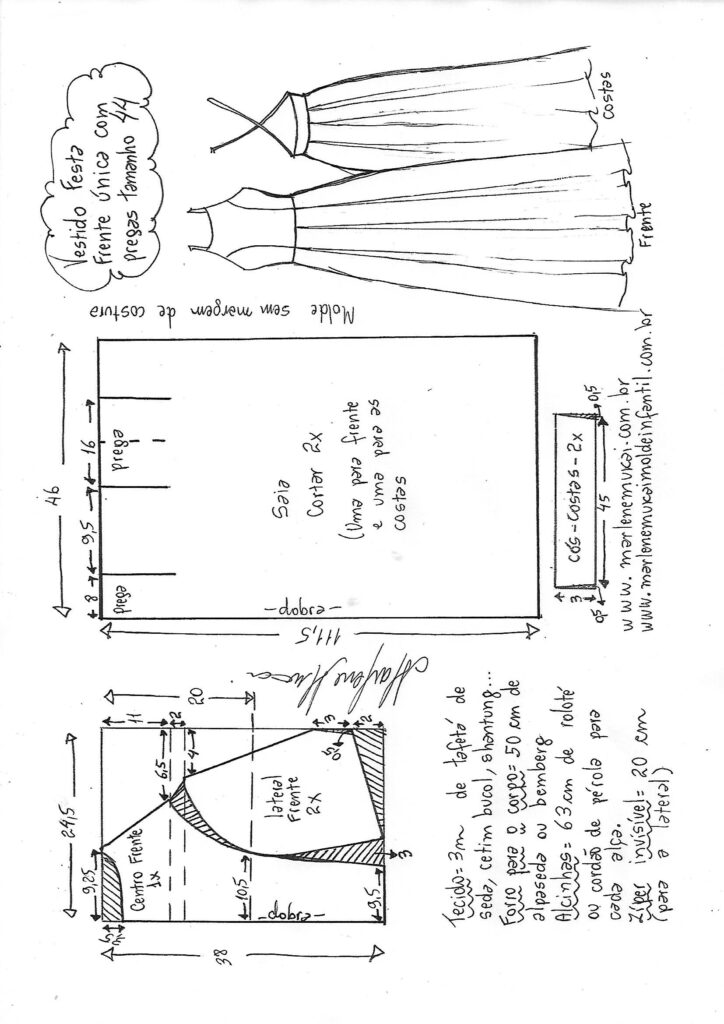 Vestido Festa
Frente única com
pregas tamanho 44
Costas
Frente
Molde sem margem de costura
46
8
9,5
16
prega
prega
Saia
Cortar 2x
(Uma para frente
e uma para as
costas
-dobra-
111,5
cós-costas-2x
3
0,5
45
0,5
www.marlenemukai.com.br
www.marlenemukaimoldeinfantil.com.br
24,5
9,25
6,5
4
11
2
20
Centro Frente
1x
lateral
Frente
2x
0,5
3
2
10,5
9,5
3
-dobra-
38
Tecido=3m de tafetá de
seda, cetim bucol, shantung...
Forro para o corpo=50 cm de
alpaseda ou bemberg
Alcinhas=63 cm de roloté
ou cordão de pérola para
cada alça.
Zíper invisível=20 cm
(para a lateral)